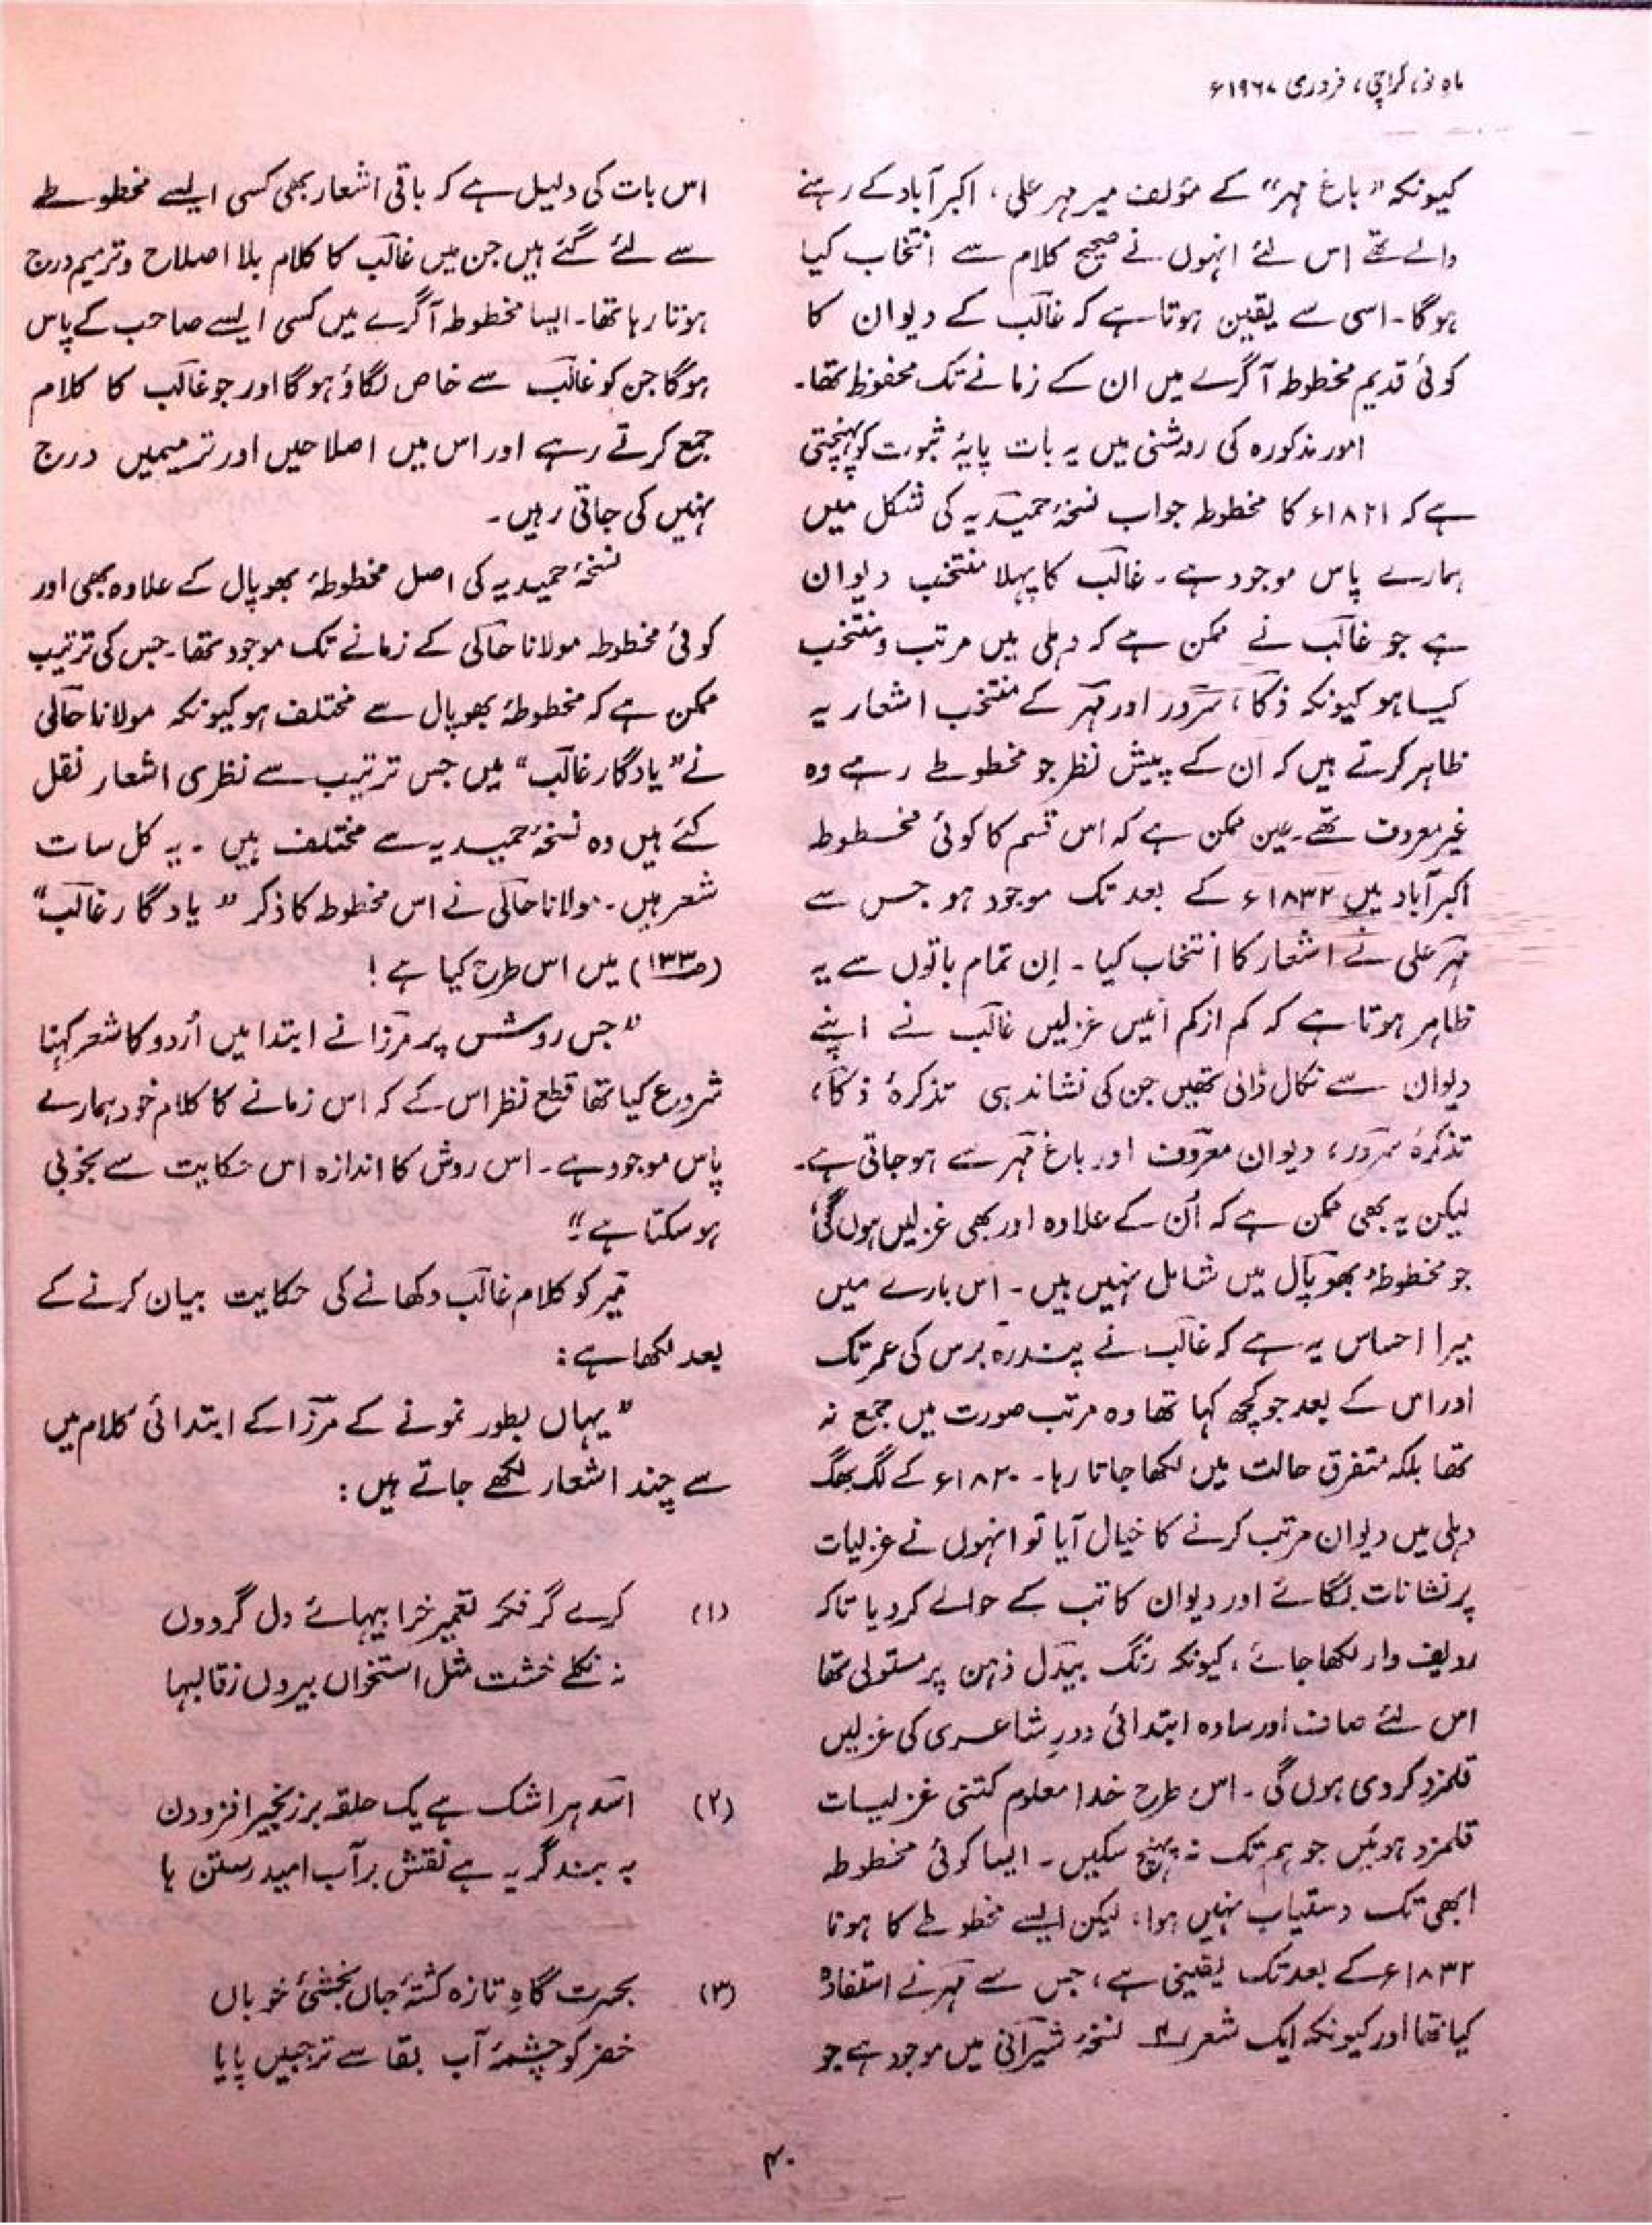 ماہ نو، کراچی، فروری ۱۹۶۷ء
کیونکہ "باغ مہر" کے مؤلف میر مہر علی، اکبرآباد کے رہنے
والے تھے اس لئے انہوں نے صحیح کلام سے انتخاب کیا
ہوگا۔ اسی سے یقین ہوتا ہے کہ غالب کے دیوان کا
کوئی قدیم مخطوطہ آگرے میں ان کے زمانے تک محفوظ تھا۔
امور مذکورہ کی روشنی میں یہ بات پایۂ ثبوت کو پہنچتی
ہے کہ ۱۸۲۱ء کا مخطوطہ جو اب نسخۂ حمیدیہ کی شکل میں
ہمارے پاس موجود ہے۔ غالب کا پہلا منتخب دیوان
ہے جو غالب نے ممکن ہے کہ دہلی میں مرتب و منتخب
کیا ہو کیونکہ ذکا، سرور اور مہر کے منتخب اشعار یہ
ظاہر کرتے ہیں کہ ان کے پیش نظر جو مخطوطے رہے وہ
غیر معروف تھے۔ عین ممکن ہے کہ اس قسم کا کوئی مخطوطہ
اکبرآباد میں ۱۸۳۲ء کے بعد تک موجود ہو جس سے
مہر علی نے اشعار کا انتخاب کیا۔ اِن تمام باتوں سے یہ
ظاہر ہوتا ہے کہ کم از کم انیس غزلیں غالب نے اپنے
دیوان سے نکال ڈالی تھیں جن کی نشاندہی تذکرۂ ذکا،
تذکرۂ سرور، دیوان معروف اور باغ مہر سے ہوجاتی ہے۔
لیکن یہ بھی ممکن ہے کہ اُن کے علاوہ اور بھی غزلیں ہوں گی
جو مخطوطۂ بھوپال میں شامل نہیں ہیں۔ اس بارے میں
میرا احساس یہ ہے کہ غالب نے پندرہ برس کی عمر تک
اور اس کے بعد جو کچھ کہا تھا وہ مرتب صورت میں جمع نہ
تھا بلکہ متفرق حالت میں لکھا جاتا رہا۔ ۱۸۲۰ء کے لگ بھگ
دہلی میں دیوان مرتب کرنے کا خیال آیا تو انہوں نے غزلیات
پر نشانات لگائے اور دیوان کاتب کے حوالے کردیا تاکہ
ردیف وار لکھا جائے، کیونکہ رنگ بیدل ذہن پر مستولی تھا
اس لئے صاف اور سادہ ابتدائی دورِ شاعری کی غزلیں
قلمزد کردی ہوں گی۔ اس طرح خدا معلوم کتنی غزلیات
قلمزد ہوئیں جو ہم تک نہ پہنچ سکیں۔ ایسا کوئی مخطوطہ
ابھی تک دستیاب نہیں ہوا، لیکن ایسے مخطوطے کا ہونا
۱۸۳۲ء کے بعد تک یقینی ہے، جس سے مہر نے استفادہ
کیا تھا اور کیونکہ ایک شعر نسخۂ شیرانی میں موجود ہے جو
اس بات کی دلیل ہے کہ باقی اشعار بھی کسی ایسے مخطوطے
سے لئے گئے ہیں جن میں غالب کا کلام بلا اصلاح و ترمیم درج
ہوتا رہا تھا۔ ایسا مخطوطہ آگرے میں کسی ایسے صاحب کے پاس
ہوگا جن کو غالب سے خاص لگاؤ ہوگا اور جو غالب کا کلام
جمع کرتے رہے اور اس میں اصلاحیں اور ترمیمیں درج
نہیں کی جاتی رہیں۔
نسخۂ حمیدیہ کی اصل مخطوطۂ بھوپال کے علاوہ بھی اور
کوئی مخطوطہ مولانا حالی کے زمانے تک موجود تھا۔ جس کی ترتیب
ممکن ہے کہ مخطوطۂ بھوپال سے مختلف ہو کیونکہ مولانا حالی
نے "یادگار غالب" میں جس ترتیب سے نظری اشعار نقل
کئے ہیں وہ نسخۂ حمیدیہ سے مختلف ہیں۔ یہ کل سات
شعر ہیں۔ مولانا حالی نے اس مخطوطہ کا ذکر "یادگار غالب"
(ص۱۳۳) میں اس طرح کیا ہے!
"جس روشس پر مرزا نے ابتدا میں اُردو کا شعر کہنا
شروع کیا تھا قطع نظر اس کے کہ اس زمانے کا کلام خود ہمارے
پاس موجود ہے۔ اس روش کا اندازہ اس حکایت سے بخوبی
ہو سکتا ہے"
میر کو کلام غالب دکھانے کی حکایت بیان کرنے کے
بعد لکھا ہے:
"یہاں بطور نمونے کے مرزا کے ابتدائی کلام میں
سے چند اشعار لکھے جاتے ہیں:
(۱) کرے گر فکر تعمیر خرابیہائے دل گردوں
نہ نکلے خشت مثل استخواں بیروں زقالبہا
(۲) اسد ہر اشک ہے یک حلقہ بر زنجیر افزودن
بہ بند گریہ ہے نقش بر آب امید رستن ہا
(۳) بحسرت گاہِ تازہ کشتۂ جاں بخشئ خوباں
خضر کو چشمۂ آب بقا سے تر جبیں پایا
۴۰